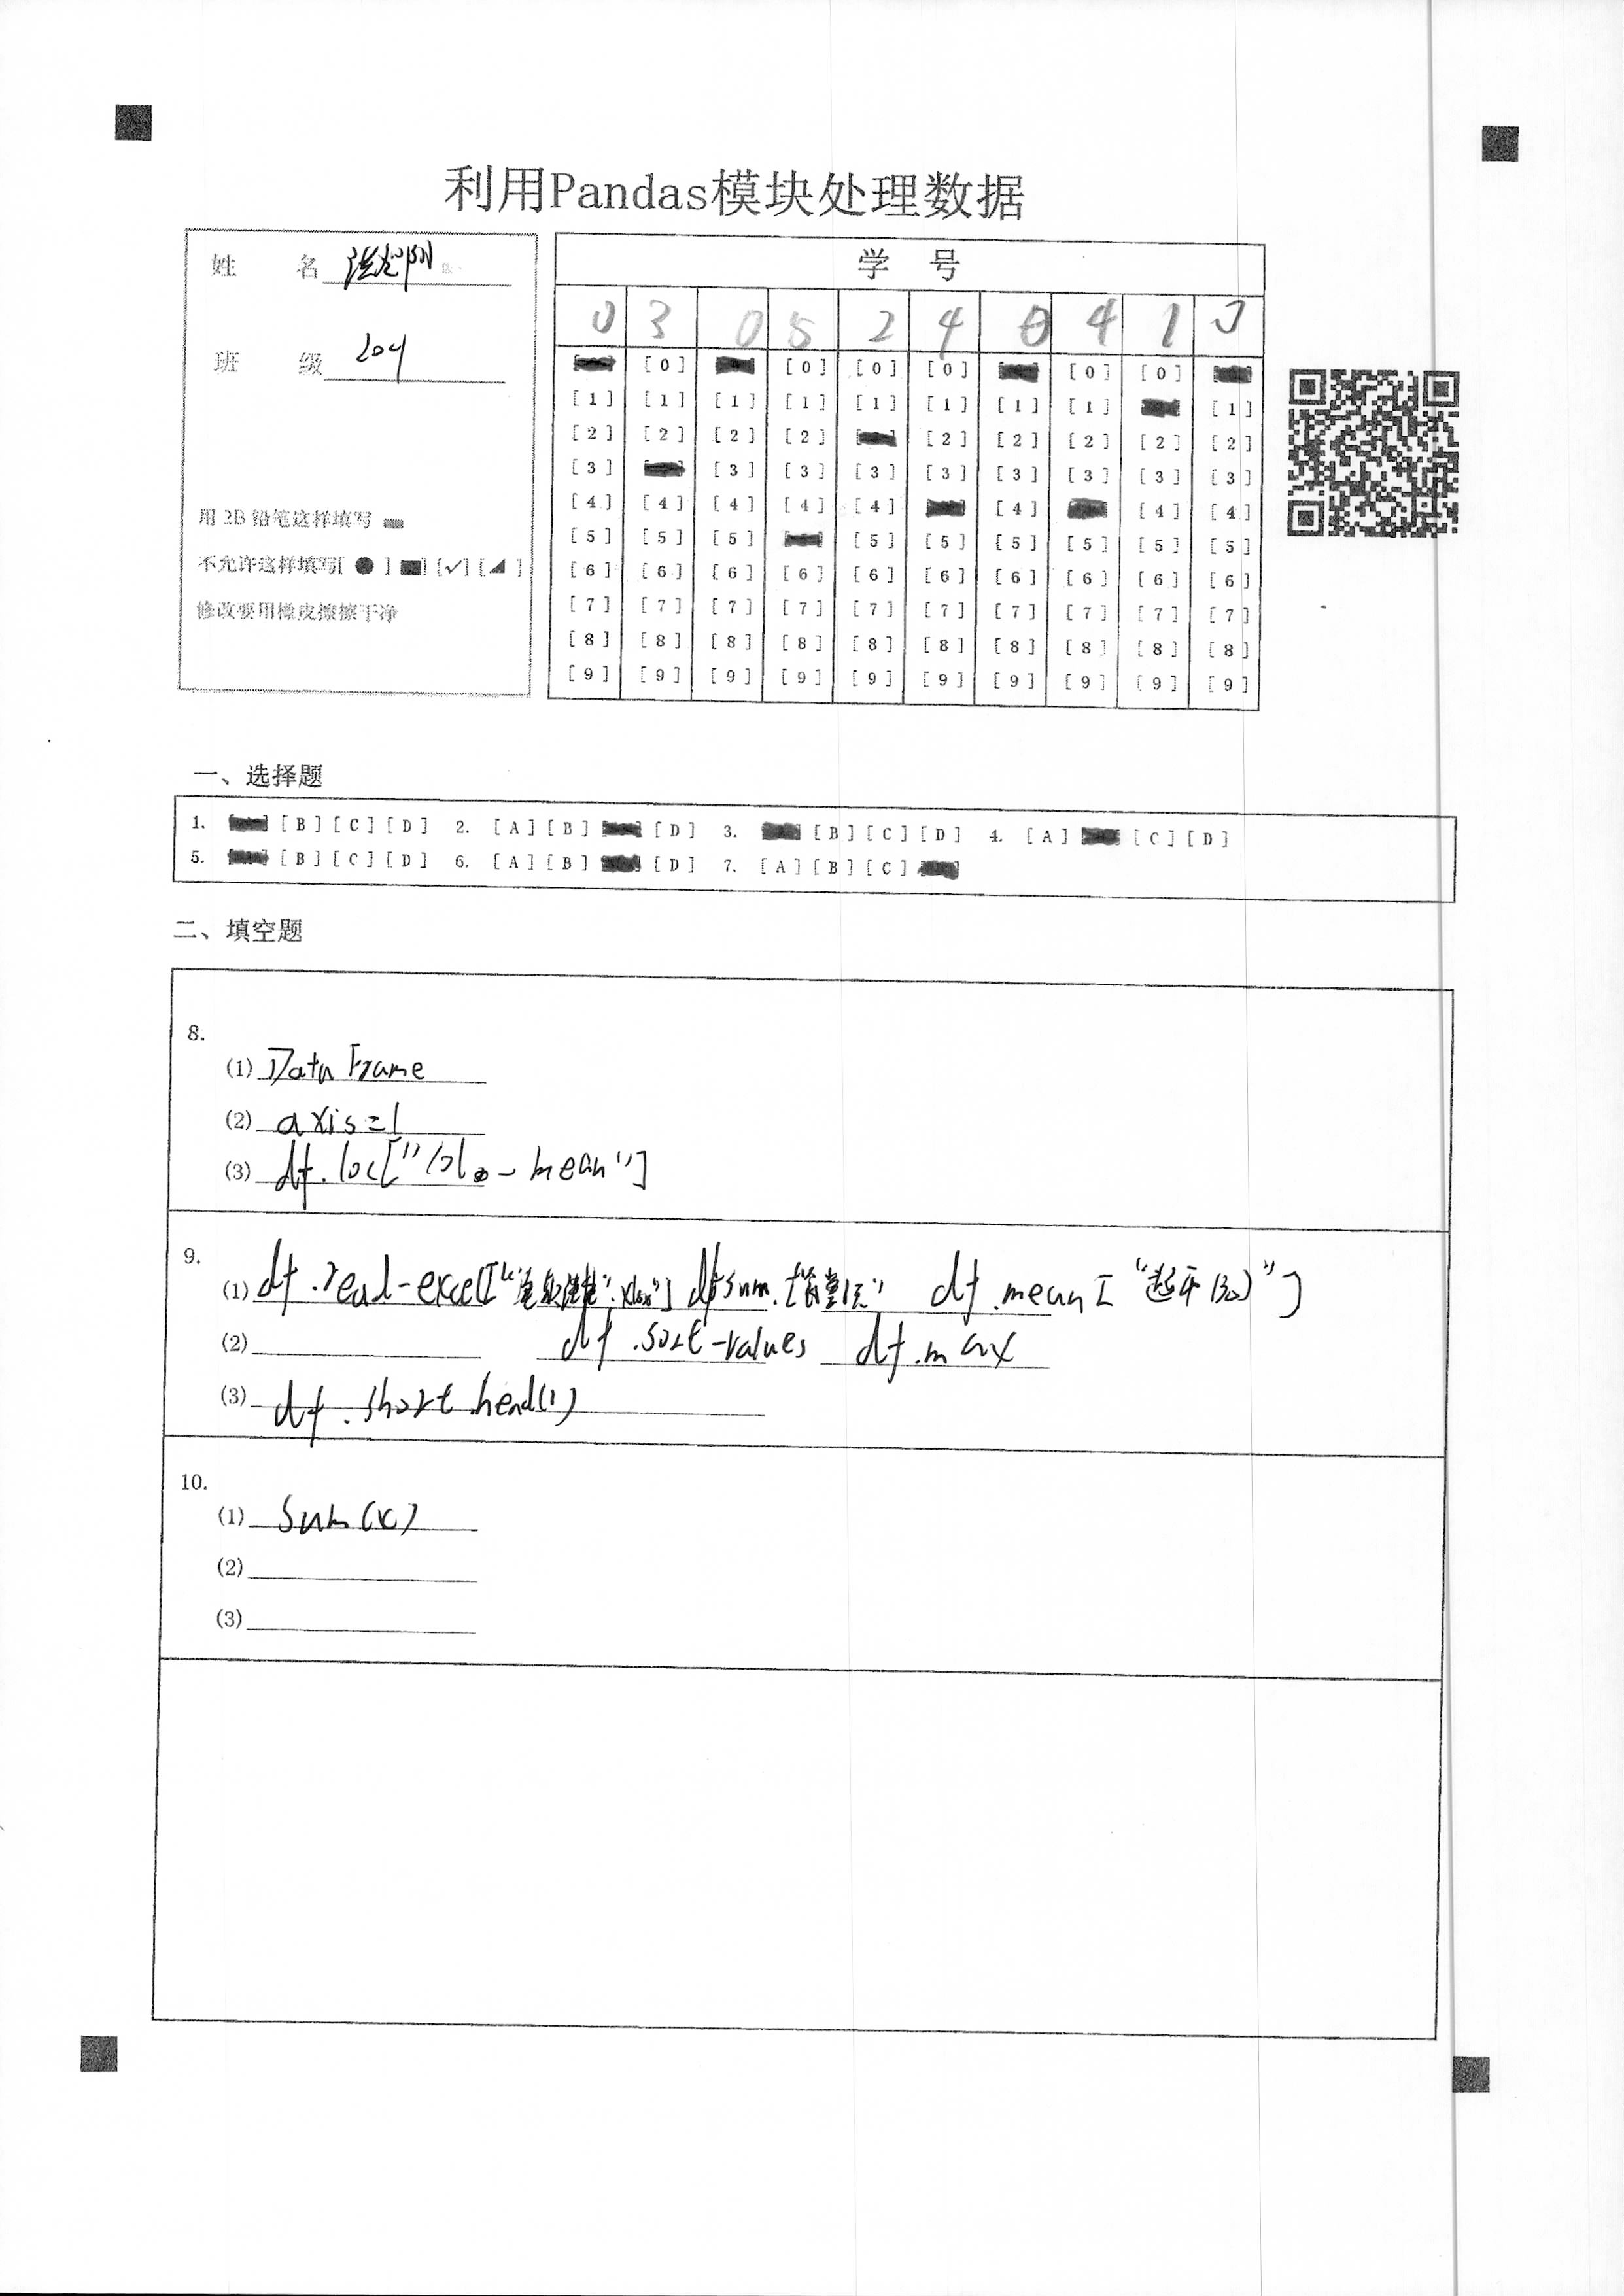 利用Pandas模块处理数据
姓 名
班 级 204
用 2B 铅笔这样填写
不允许这样填写[ ● ] [■] [✓] [◢ ]
修改要用橡皮擦擦干净
学 号
0 3 0 5 2 4 0 4 1 0
[0] [0] [0] [0] [0] [0]
[1] [1] [1] [1] [1] [1] [1] [1] [1]
[2] [2] [2] [2] [2] [2] [2] [2] [2]
[3] [3] [3] [3] [3] [3] [3] [3] [3]
[4] [4] [4] [4] [4] [4] [4] [4]
[5] [5] [5] [5] [5] [5] [5] [5] [5]
[6] [6] [6] [6] [6] [6] [6] [6] [6] [6]
[7] [7] [7] [7] [7] [7] [7] [7] [7] [7]
[8] [8] [8] [8] [8] [8] [8] [8] [8] [8]
[9] [9] [9] [9] [9] [9] [9] [9] [9] [9]
一、选择题
1. [B] [C] [D] 2. [A] [B] [D] 3. [B] [C] [D] 4. [A] [C] [D]
5. [B] [C] [D] 6. [A] [B] [D] 7. [A] [B] [C]
二、填空题
8.
(1) DataFrame
(2) axis=1
(3) df.loc[" mean"]
9.
(1) df.read-excel[" .xlsx"] df.sum. df.mean[" "]
(2) df.sort-values df.max
(3) df.short.head(1)
10.
(1) Sum(x)
(2)
(3)